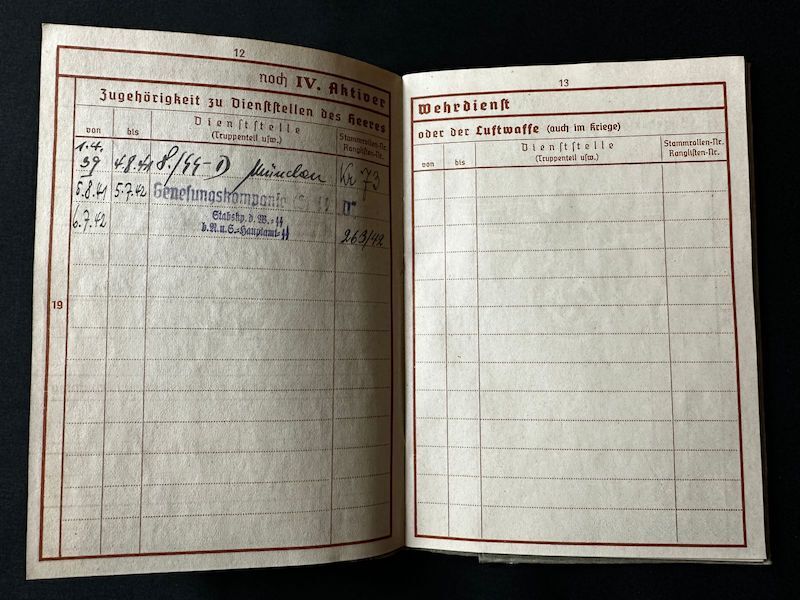 12
noch IV. Aktiver
Zugehörigkeit zu Dienststellen des Heeres
von bis Dienststelle (Truppenteil usw.) Stammrollen-Nr. Ranglisten-Nr.
1.4.39 4.8.41 8./SS-D München Kr 73
5.8.41 5.7.42 Genesungskompanie
6.7.42 Stabskp. d. W.-SS
b. R.u.S.-Hauptamt-SS 263/42
19
13
Wehrdienst
oder der Luftwaffe (auch im Kriege)
von bis Dienststelle (Truppenteil usw.) Stammrollen-Nr. Ranglisten-Nr.